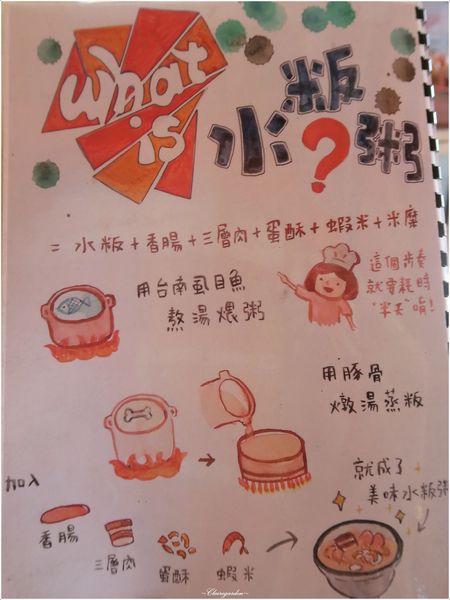 What is 水粄粥?
= 水粄+香腸+三層肉+蛋酥+蝦米+米糜
用台南虱目魚
熬湯煨粥
這個步奏
就要耗時
"半天"唷!
用豚骨
燉湯蒸粄
加入
香腸
三層肉
蛋酥
蝦米
就成了
美味水粄粥
~Clairegarden~